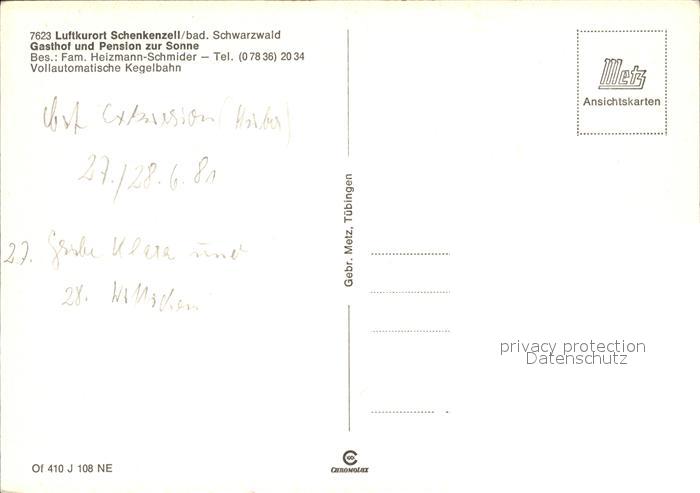 7623 Luftkurort Schenkenzell/bad. Schwarzwald
Gasthof und Pension zur Sonne
Bes.: Fam. Heizmann-Schmider — Tel. (0 78 36) 20 34
Vollautomatische Kegelbahn
Metz
Ansichtskarten
Exkursion
27./28.6.81
27. Grube Klara und
28. Wittichen
Gebr. Metz, Tübingen
privacy protection
Datenschutz
Of 410 J 108 NE
CHROMOLUX